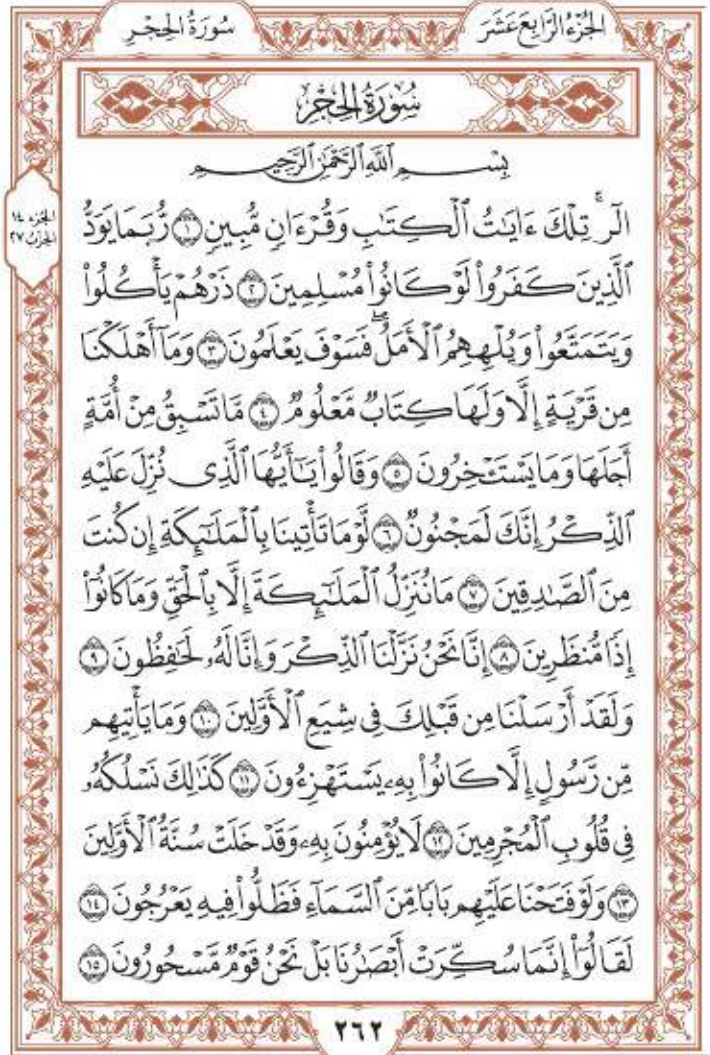 الجُزْءُ الرَّابِعَ عَشَرَ
سُورَةُ الحِجْرِ
سُورَةُ الحِجْرِ
بِسْمِ ٱللَّهِ ٱلرَّحْمَٰنِ ٱلرَّحِيمِ
الجزء ١٤
الحزب ٢٧
الٓرۚ تِلۡكَ ءَايَٰتُ ٱلۡكِتَٰبِ وَقُرۡءَانٖ مُّبِينٖ ١ رُّبَمَا يَوَدُّ
ٱلَّذِينَ كَفَرُواْ لَوۡ كَانُواْ مُسۡلِمِينَ ٢ ذَرۡهُمۡ يَأۡكُلُواْ
وَيَتَمَتَّعُواْ وَيُلۡهِهِمُ ٱلۡأَمَلُۖ فَسَوۡفَ يَعۡلَمُونَ ٣ وَمَآ أَهۡلَكۡنَا
مِن قَرۡيَةٍ إِلَّا وَلَهَا كِتَابٞ مَّعۡلُومٞ ٤ مَّا تَسۡبِقُ مِنۡ أُمَّةٍ
أَجَلَهَا وَمَا يَسۡتَـٔۡخِرُونَ ٥ وَقَالُواْ يَٰٓأَيُّهَا ٱلَّذِي نُزِّلَ عَلَيۡهِ
ٱلذِّكۡرُ إِنَّكَ لَمَجۡنُونٞ ٦ لَّوۡمَا تَأۡتِينَا بِٱلۡمَلَٰٓئِكَةِ إِن كُنتَ
مِنَ ٱلصَّٰدِقِينَ ٧ مَا نُنَزِّلُ ٱلۡمَلَٰٓئِكَةَ إِلَّا بِٱلۡحَقِّ وَمَا كَانُوٓاْ
إِذٗا مُّنظَرِينَ ٨ إِنَّا نَحۡنُ نَزَّلۡنَا ٱلذِّكۡرَ وَإِنَّا لَهُۥ لَحَٰفِظُونَ ٩
وَلَقَدۡ أَرۡسَلۡنَا مِن قَبۡلِكَ فِي شِيَعِ ٱلۡأَوَّلِينَ ١٠ وَمَا يَأۡتِيهِم
مِّن رَّسُولٍ إِلَّا كَانُواْ بِهِۦ يَسۡتَهۡزِءُونَ ١١ كَذَٰلِكَ نَسۡلُكُهُۥ
فِي قُلُوبِ ٱلۡمُجۡرِمِينَ ١٢ لَا يُؤۡمِنُونَ بِهِۦ وَقَدۡ خَلَتۡ سُنَّةُ ٱلۡأَوَّلِينَ
١٣ وَلَوۡ فَتَحۡنَا عَلَيۡهِم بَابٗا مِّنَ ٱلسَّمَآءِ فَظَلُّواْ فِيهِ يَعۡرُجُونَ ١٤
لَقَالُوٓاْ إِنَّمَا سُكِّرَتۡ أَبۡصَٰرُنَا بَلۡ نَحۡنُ قَوۡمٞ مَّسۡحُورُونَ ١٥
٢٦٢